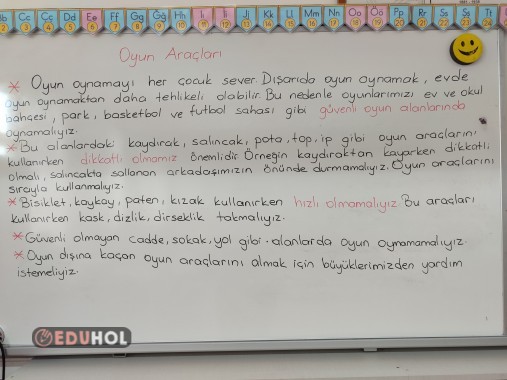 Bb Cc Çç Dd Ee Ff Gg Ğğ Hh Iı İi Jj Kk Ll Mm Nn Oo Öö Pp Rr Ss Şş
Oyun Araçları
* Oyun oynamayı her çocuk sever. Dışarıda oyun oynamak, evde
oyun oynamaktan daha tehlikeli olabilir. Bu nedenle oyunlarımızı ev ve okul
bahçesi, park, basketbol ve futbol sahası gibi güvenli oyun alanlarında
oynamalıyız.
* Bu alanlardaki kaydırak, salıncak, pota, top, ip gibi oyun araçlarını
kullanırken dikkatli olmamız önemlidir. Örneğin kaydıraktan kayarken dikkatli
olmalı, salıncakta sallanan arkadaşımızın önünde durmamalıyız. Oyun araçlarını
sırayla kullanmalıyız.
* Bisiklet, kaykay, paten, kızak kullanırken hızlı olmamalıyız. Bu araçları
kullanırken kask, dizlik, dirseklik takmalıyız.
* Güvenli olmayan cadde, sokak, yol gibi alanlarda oyun oynamamalıyız.
* Oyun dışına kaçan oyun araçlarını almak için büyüklerimizden yardım
istemeliyiz.
EDUHOL